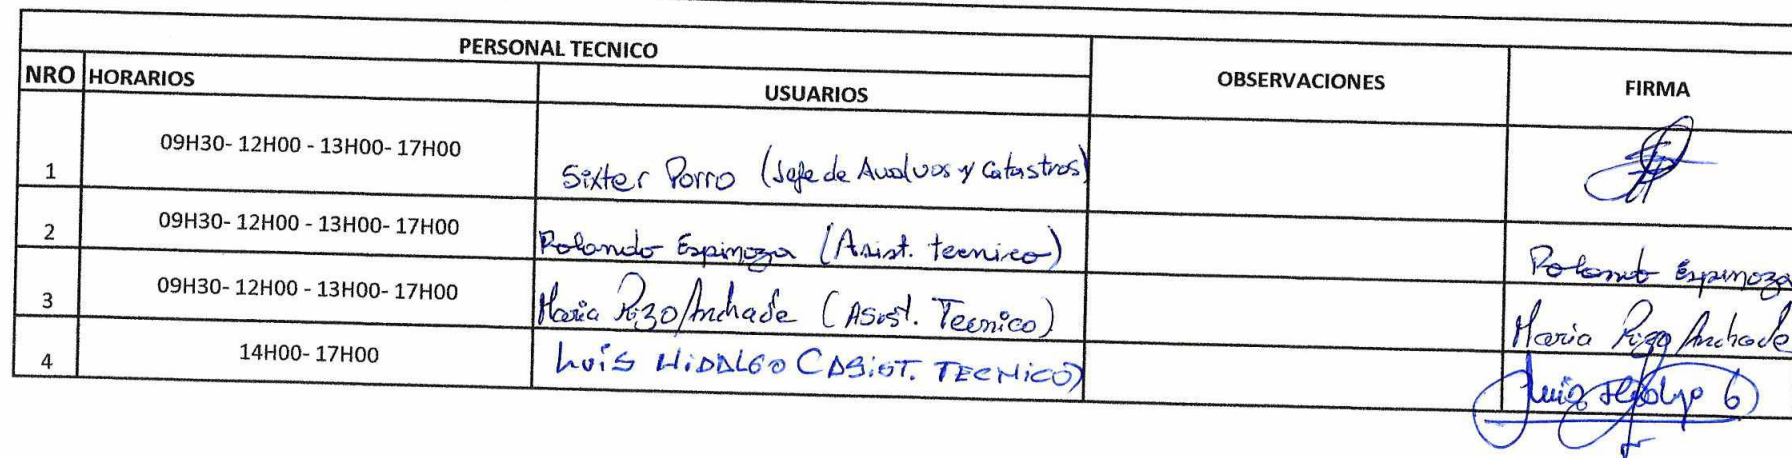 PERSONAL TECNICO
OBSERVACIONES
FIRMA
NRO HORARIOS
USUARIOS
1 09H30- 12H00 - 13H00- 17H00 Sixter Porro (Jefe de Avaluos y Catastros)
2 09H30- 12H00 - 13H00- 17H00 Rolando Espinoza (Asist. tecnico) Rolando Espinoza
3 09H30- 12H00 - 13H00- 17H00 Maria Rizo Andrade (Asist. Tecnico) Maria Rizo Andrade
4 14H00- 17H00 Luis HiDALGO (ASiST. TECNICO) Luis Hidalgo G